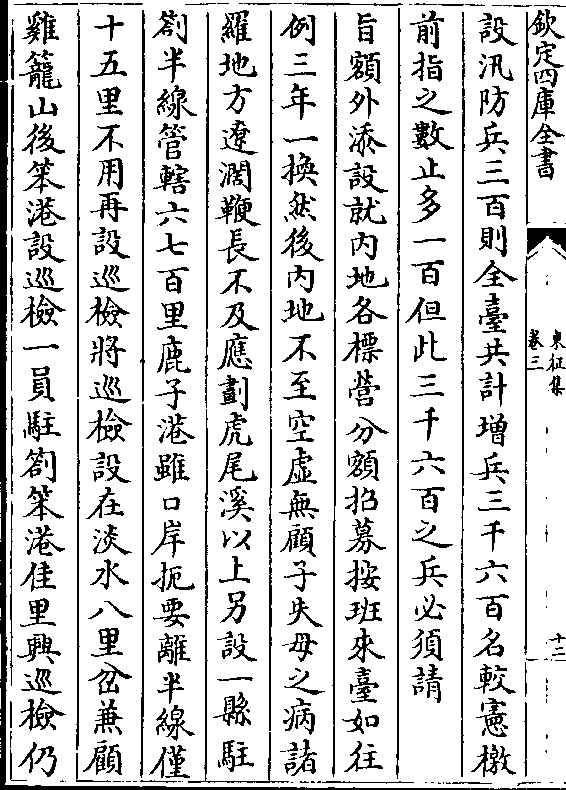 欽定四庫全書
東征集
卷三
十二
設汛防兵三百則全臺共計增兵三千六百名較憲檄
前指之數止多一百但此三千六百之兵必須請
旨額外添設就內地各標營分額招募按班來臺如往
例三年一換然後內地不至空虛無顧子失母之病諸
羅地方遼濶鞭長不及應劃虎尾溪以上另設一縣駐
劄半線管轄六七百里鹿子港雖口岸扼要離半線僅
十五里不用再設巡檢將巡檢設在淡水八里岔兼顧
雞籠山後笨港設巡檢一員駐劄笨港佳里興巡檢仍